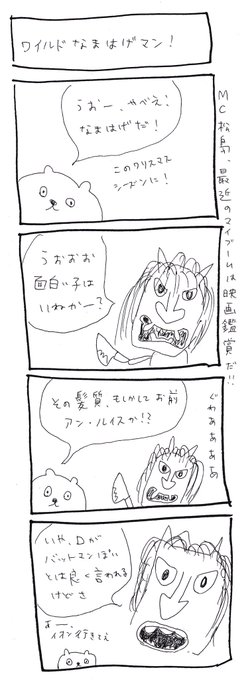 ワイルドなまはげマン！
うおー、やべえ！
なまはげだ！
このクリスマス
シーズンに！
MC松島、最近のマイブームは映画鑑賞だ!!
うおおおお
面白い子は
いねかー？
その髪質、もしかしてお前
アン・ルイスか!?
ぐわああああ
いや、Dが
バットマンぽい
とは良く言われる
けどさ
あー、
イオン行きてえ